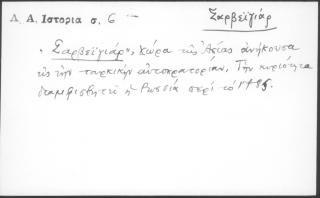 Δ. Α. Ιστορια σ. 6 — Σαρβεϊγιάρ
"Σαρβεϊγιάρ", χώρα τῆς Ἀσίας ἀνήκουσα
εἰς τὴν τουρκικὴν αὐτοκρατορίαν. Τὴν κυριότητα
διαμφισβητεῖ ἡ Ρωσσία περὶ τὸ